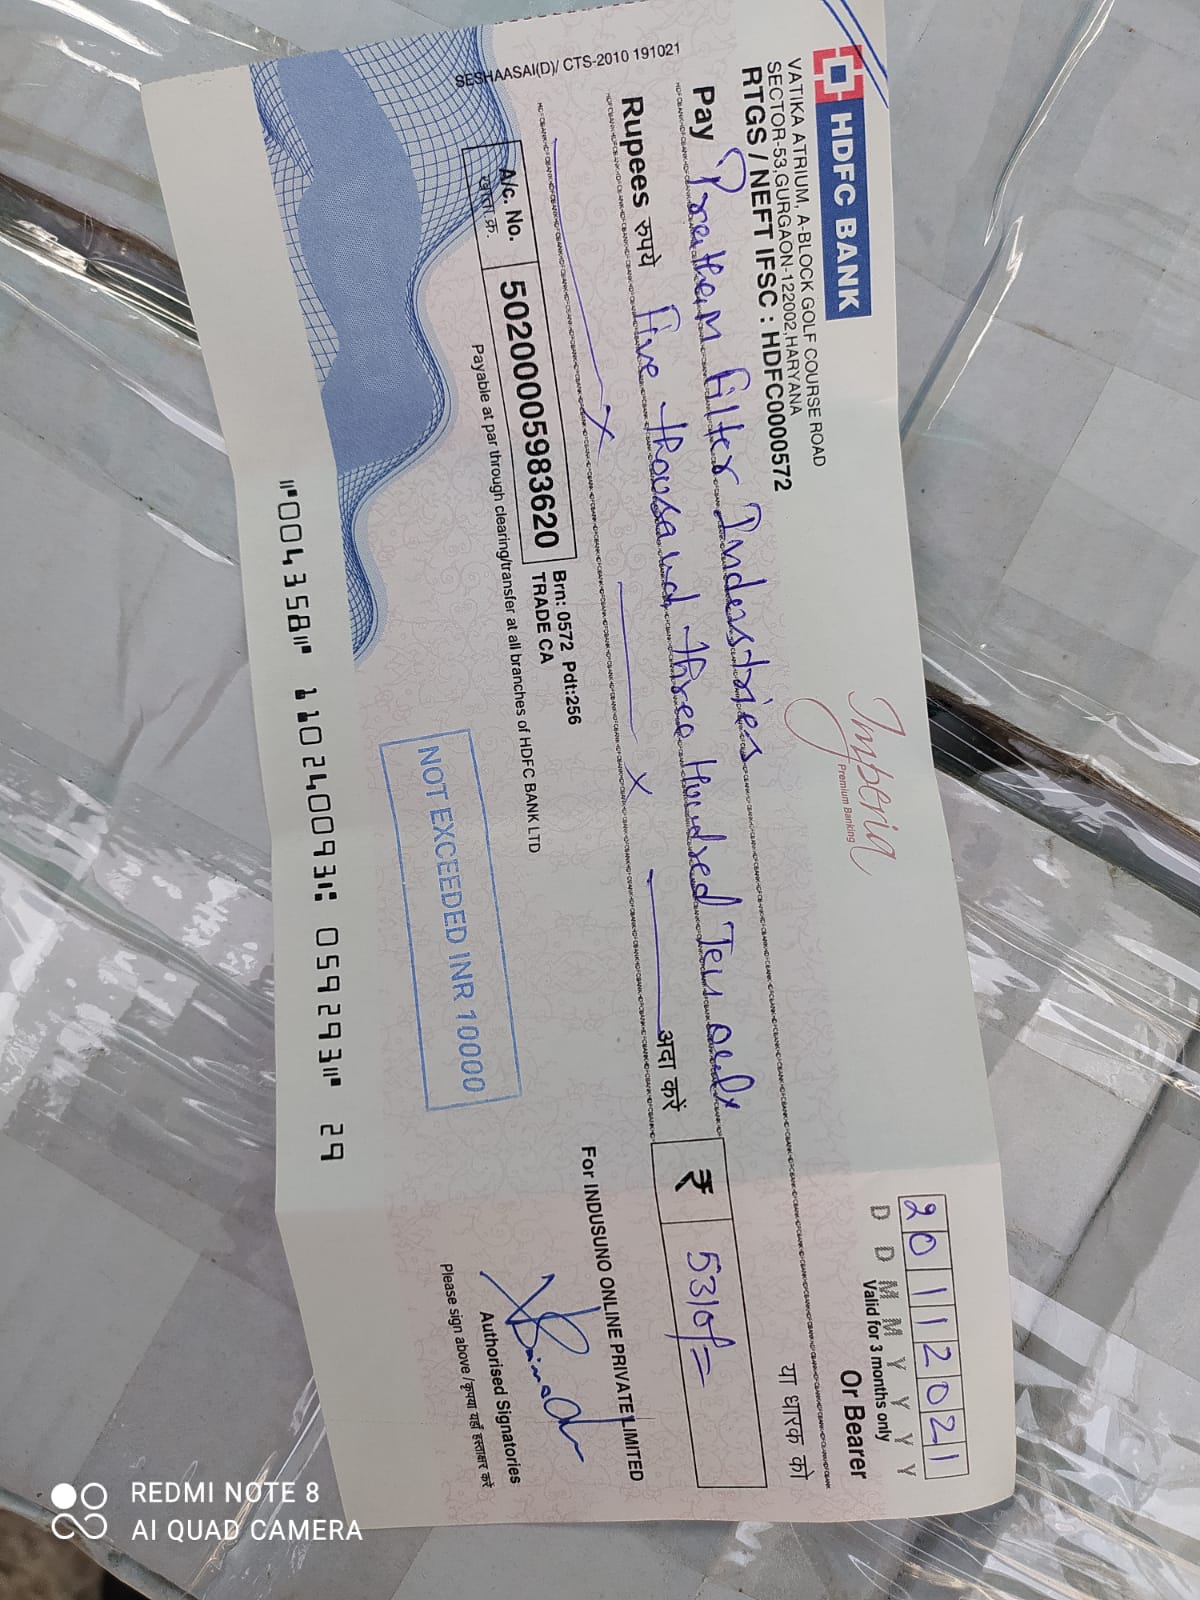 SESHAASAI(D)/ CTS-2010 191021
HDFC BANK
VATIKA ATRIUM, A-BLOCK GOLF COURSE ROAD
SECTOR-53,GURGAON-122002,HARYANA
RTGS / NEFT IFSC : HDFC0000572
Imperia
Premium Banking
20112021
D D M M Y Y Y Y
Valid for 3 months only
Or Bearer
Pay Pratham Filter Industries
या धारक को
Rupees रुपये Five thousand three Hundred Ten only
अदा करें
₹ 5310/=
A/c. No.
खाता क्र.
50200005983620
Brn: 0572 Pdt:256
TRADE CA
Payable at par through clearing/transfer at all branches of HDFC BANK LTD
For INDUSUNO ONLINE PRIVATE LIMITED
NOT EXCEEDED INR 10000
Authorised Signatories
Please sign above / कृपया यहाँ हस्ताक्षर करें
⑈004358⑈ 110240093⑆ 059293⑈ 29
REDMI NOTE 8
AI QUAD CAMERA